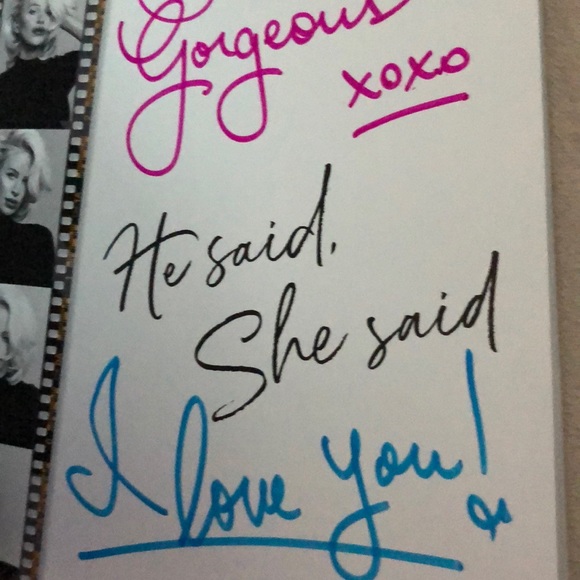 Gorgeous
xoxo
He said,
She said
I love you!